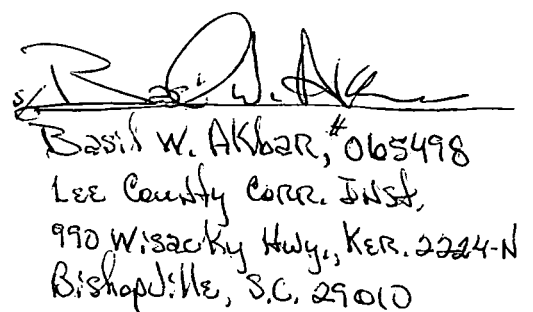 s/ Basil W. Akbar
Basil W. Akbar, #065498
Lee County Corr. Inst,
990 Wisacky Hwy., Ker. 2224-N
Bishopville, S.C. 29010